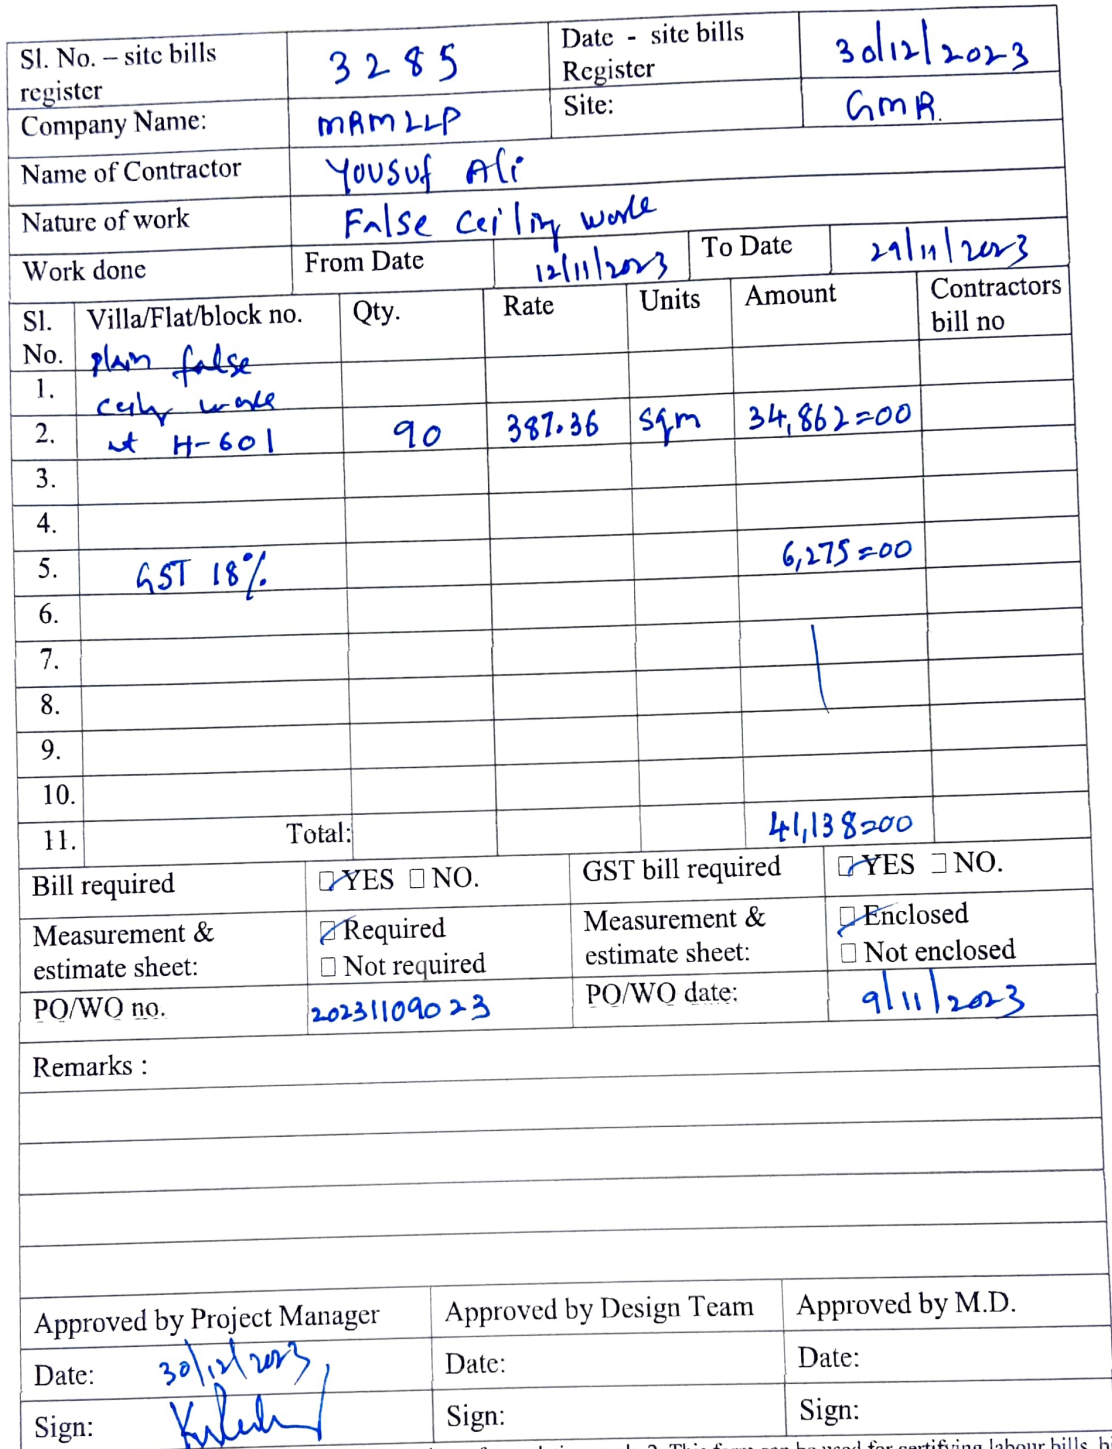 Sl. No. – site bills register 3285 Date - site bills Register 30/12/2023
Company Name: MRMLLP Site: GMR.
Name of Contractor Yousuf Ali
Nature of work False Ceiling work
Work done From Date 12/11/2023 To Date 29/11/2023
Sl. No. Villa/Flat/block no. Qty. Rate Units Amount Contractors bill no
plain false
1. work
2. at H-601 90 387.36 sqm 34,862=00
3.
4.
5. GST 18% 6,275=00
6.
7.
8.
9.
10.
11. Total: 41,138=00
Bill required YES NO. GST bill required YES NO.
Measurement & estimate sheet: Required Not required Measurement & estimate sheet: Enclosed Not enclosed
PO/WO no. 20231109023 PO/WO date: 9/11/2023
Remarks :
Approved by Project Manager Approved by Design Team Approved by M.D.
Date: 30/12/2023 Date: Date:
Sign: Sign: Sign: